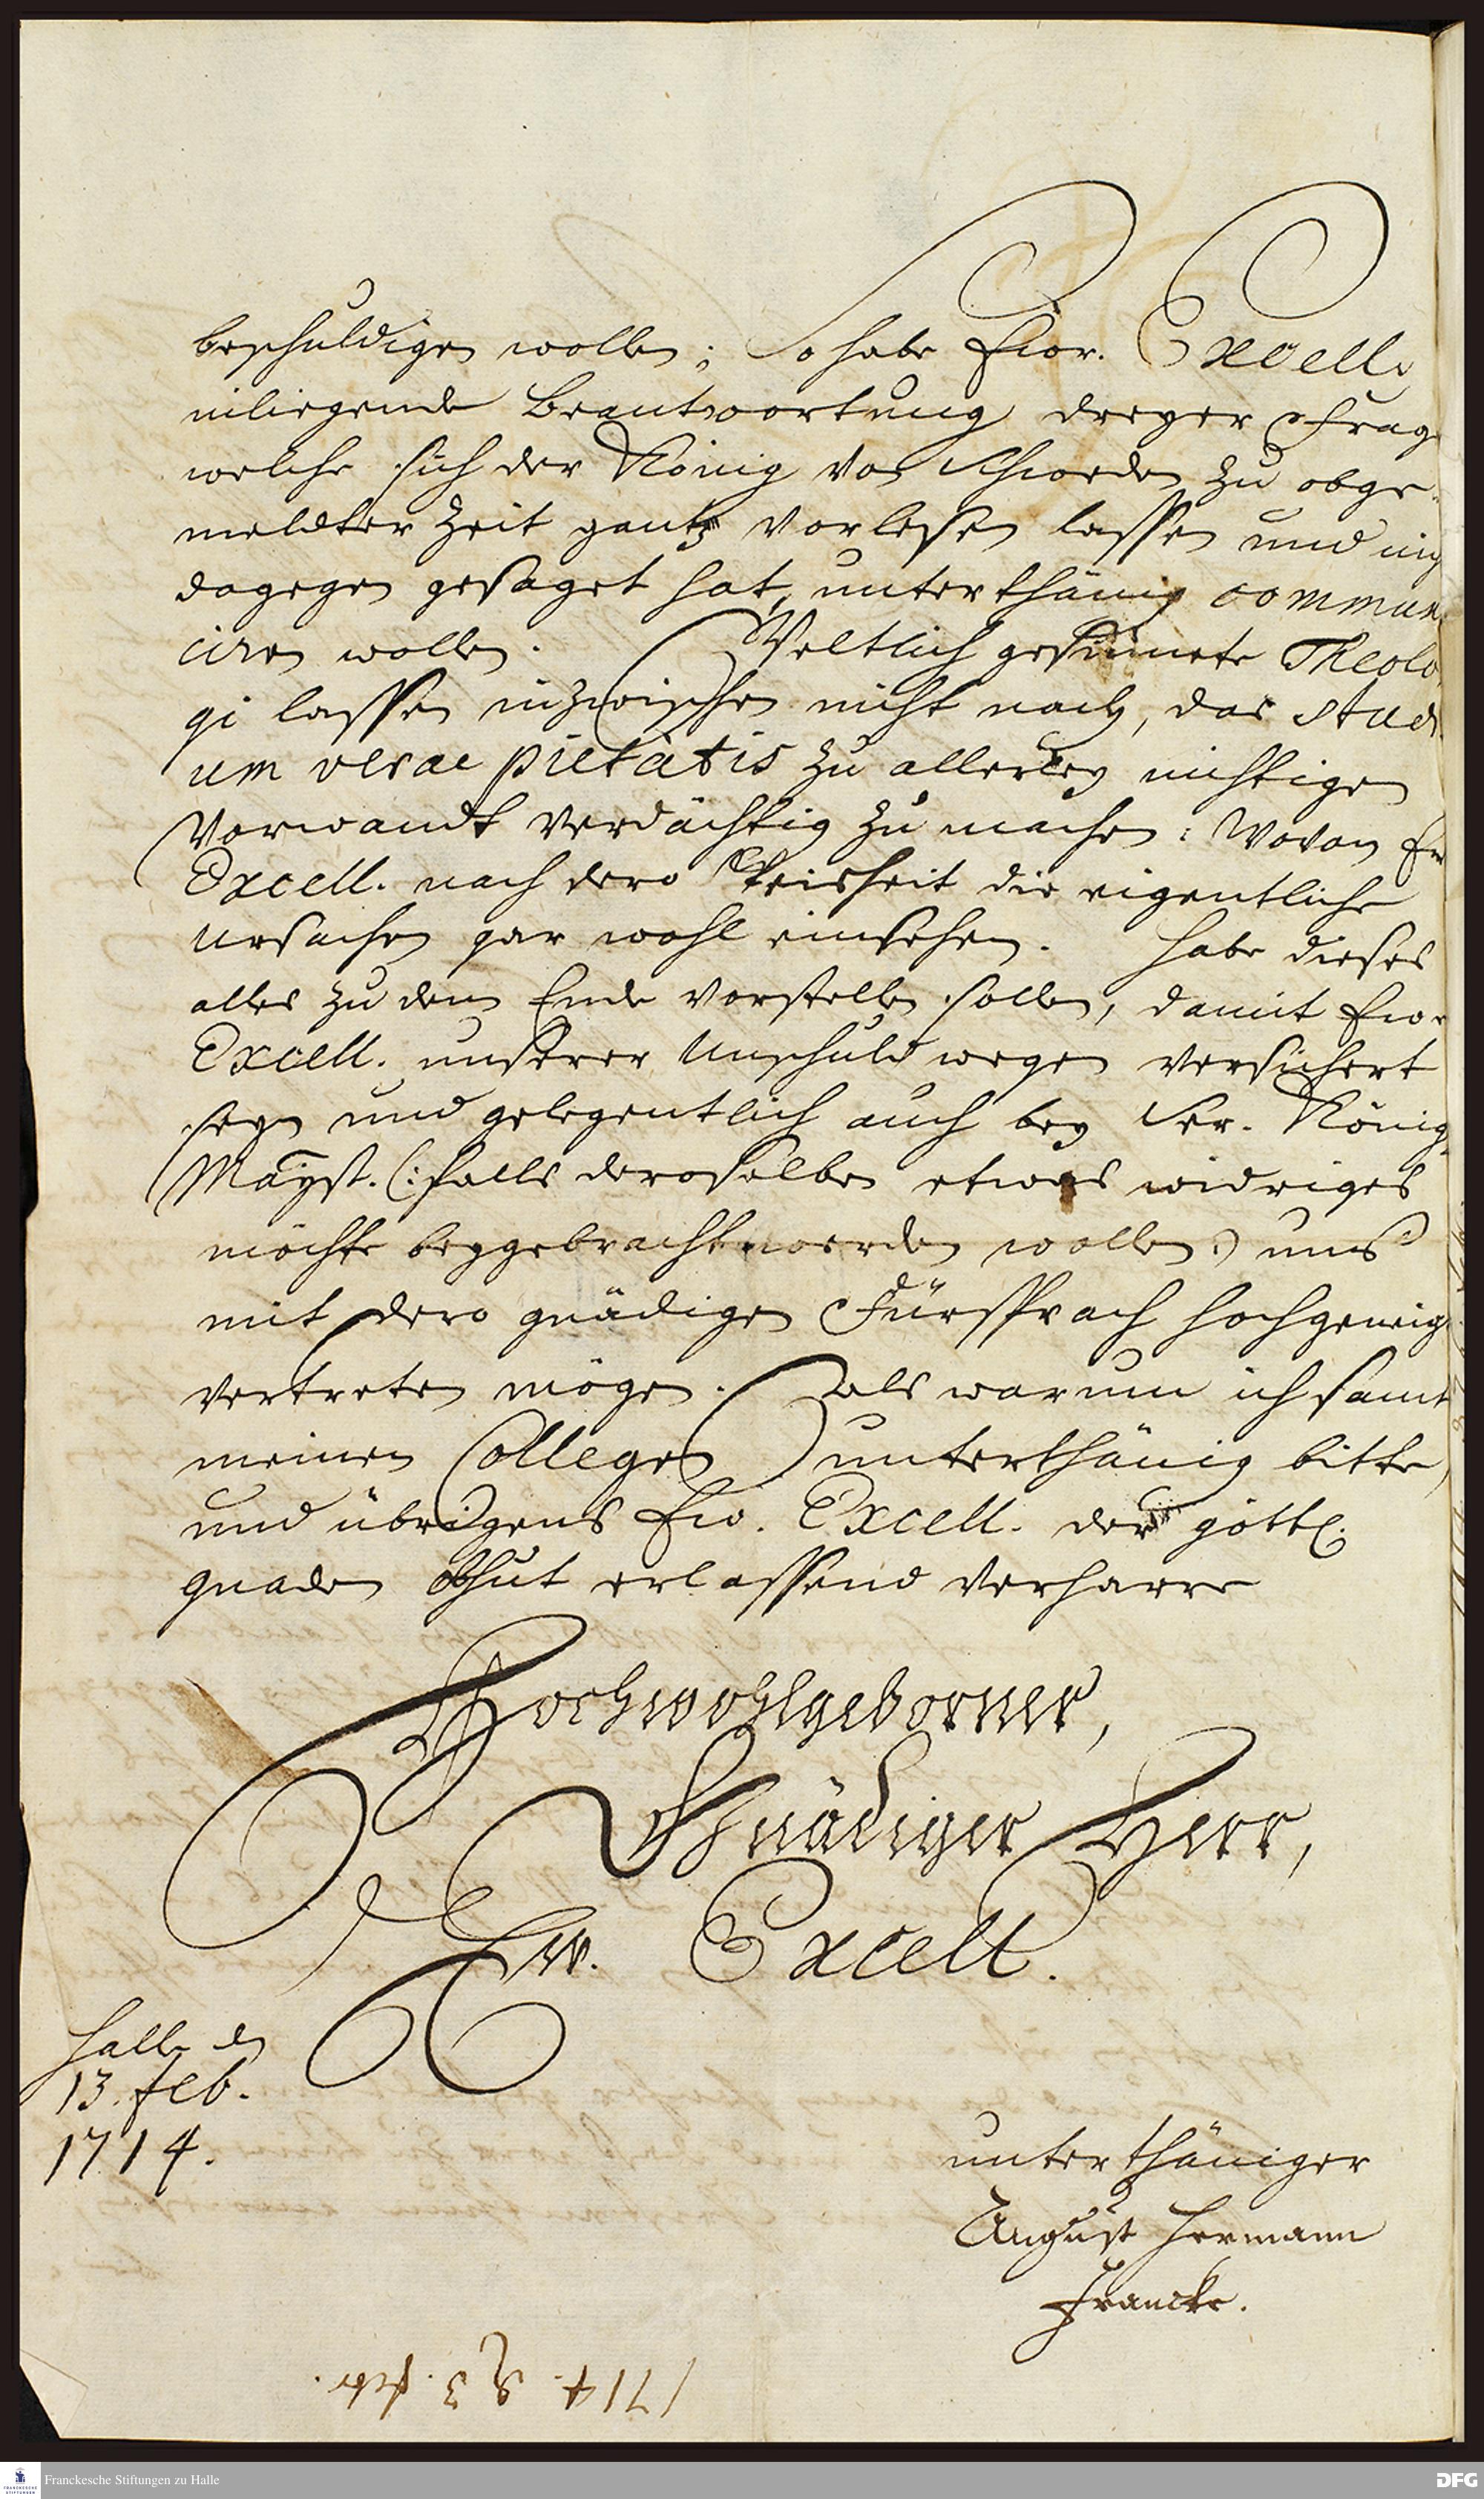 beschuldigen wollen; So habe Ewr. Excell.
inliegende Beantwortung dreyer Frag
welche sich der König von Schweden zu obge-
meldter Zeit gantz vorlesen lassen und nie
dagegen gesaget hat, unterthänig commun
ciren wollen. Weltlich gesinnete Theolo
gi lassen inzwischen nicht nach, das studi
um verae pietatis zu allerley nichtigen
Vorwandt verdächtig zu machen: Wovon Ew
Excell. nach dero Weisheit die eigentliche
Ursachen gar wohl einsehen. Habe dieses
alles zu dem Ende vorstellen sollen, damit Ewr
Excell. unserer Unschuld wegen versichert
seyn und gelegentlich auch bey Sr. König.
Mayst. (: falls deroselben etwas widriges
möchte beygebracht werden wollen :) uns
mit dero gnädigen Fürsprach hochgeneig
vertreten möge. Als warum ich samt
meinen Collegen unterthänig bitte,
und übrigens Ew. Excell. der göttl.
gnaden Obhut erlassend verharre
Hochwohlgeborner,
Gnädiger Herr,
Ew. Excell.
Halle den
13. Feb.
1714.
unterthäniger
August Hermann
Francke.
1714. 3. febr.
Franckesche Stiftungen zu Halle
DFG